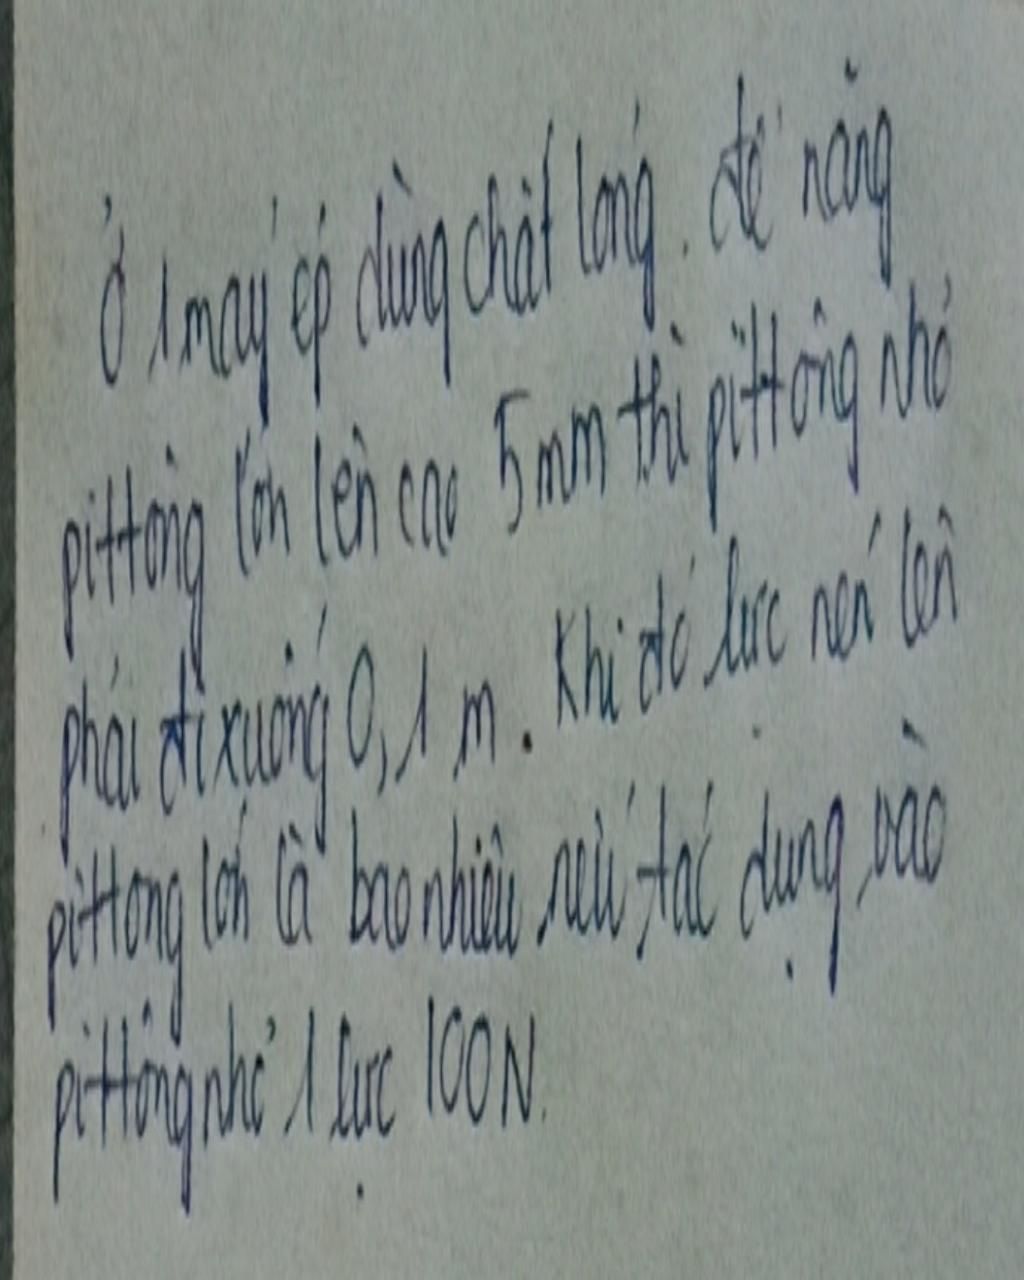 Ở 1 máy ép dùng chất lỏng. để nâng
pittông lớn lên cao 5mm thì pittông nhỏ
phải đi xuống 0,1 m. Khi đó lực nén lên
pittông lớn là bao nhiêu nếu tác dụng vào
pittông nhỏ 1 lực 100N.